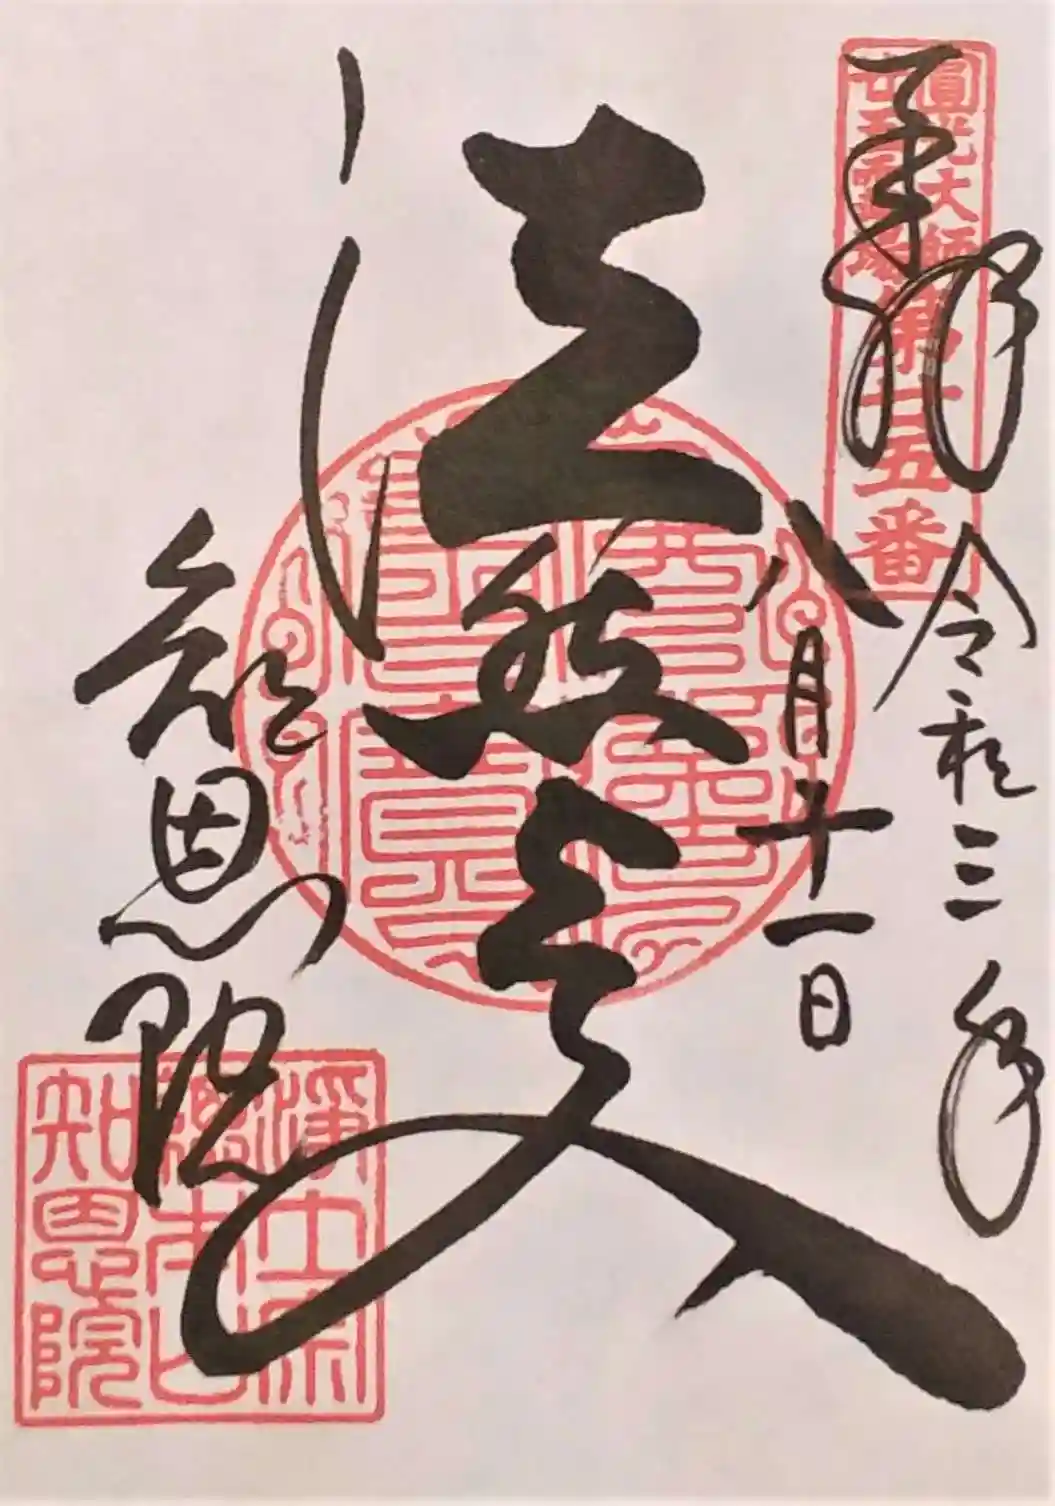 圓光大師
廿五霊場
第廿五番
奉拝
令和三年
八月十一日
法然上人
知恩院
浄土宗
総本山
知恩院